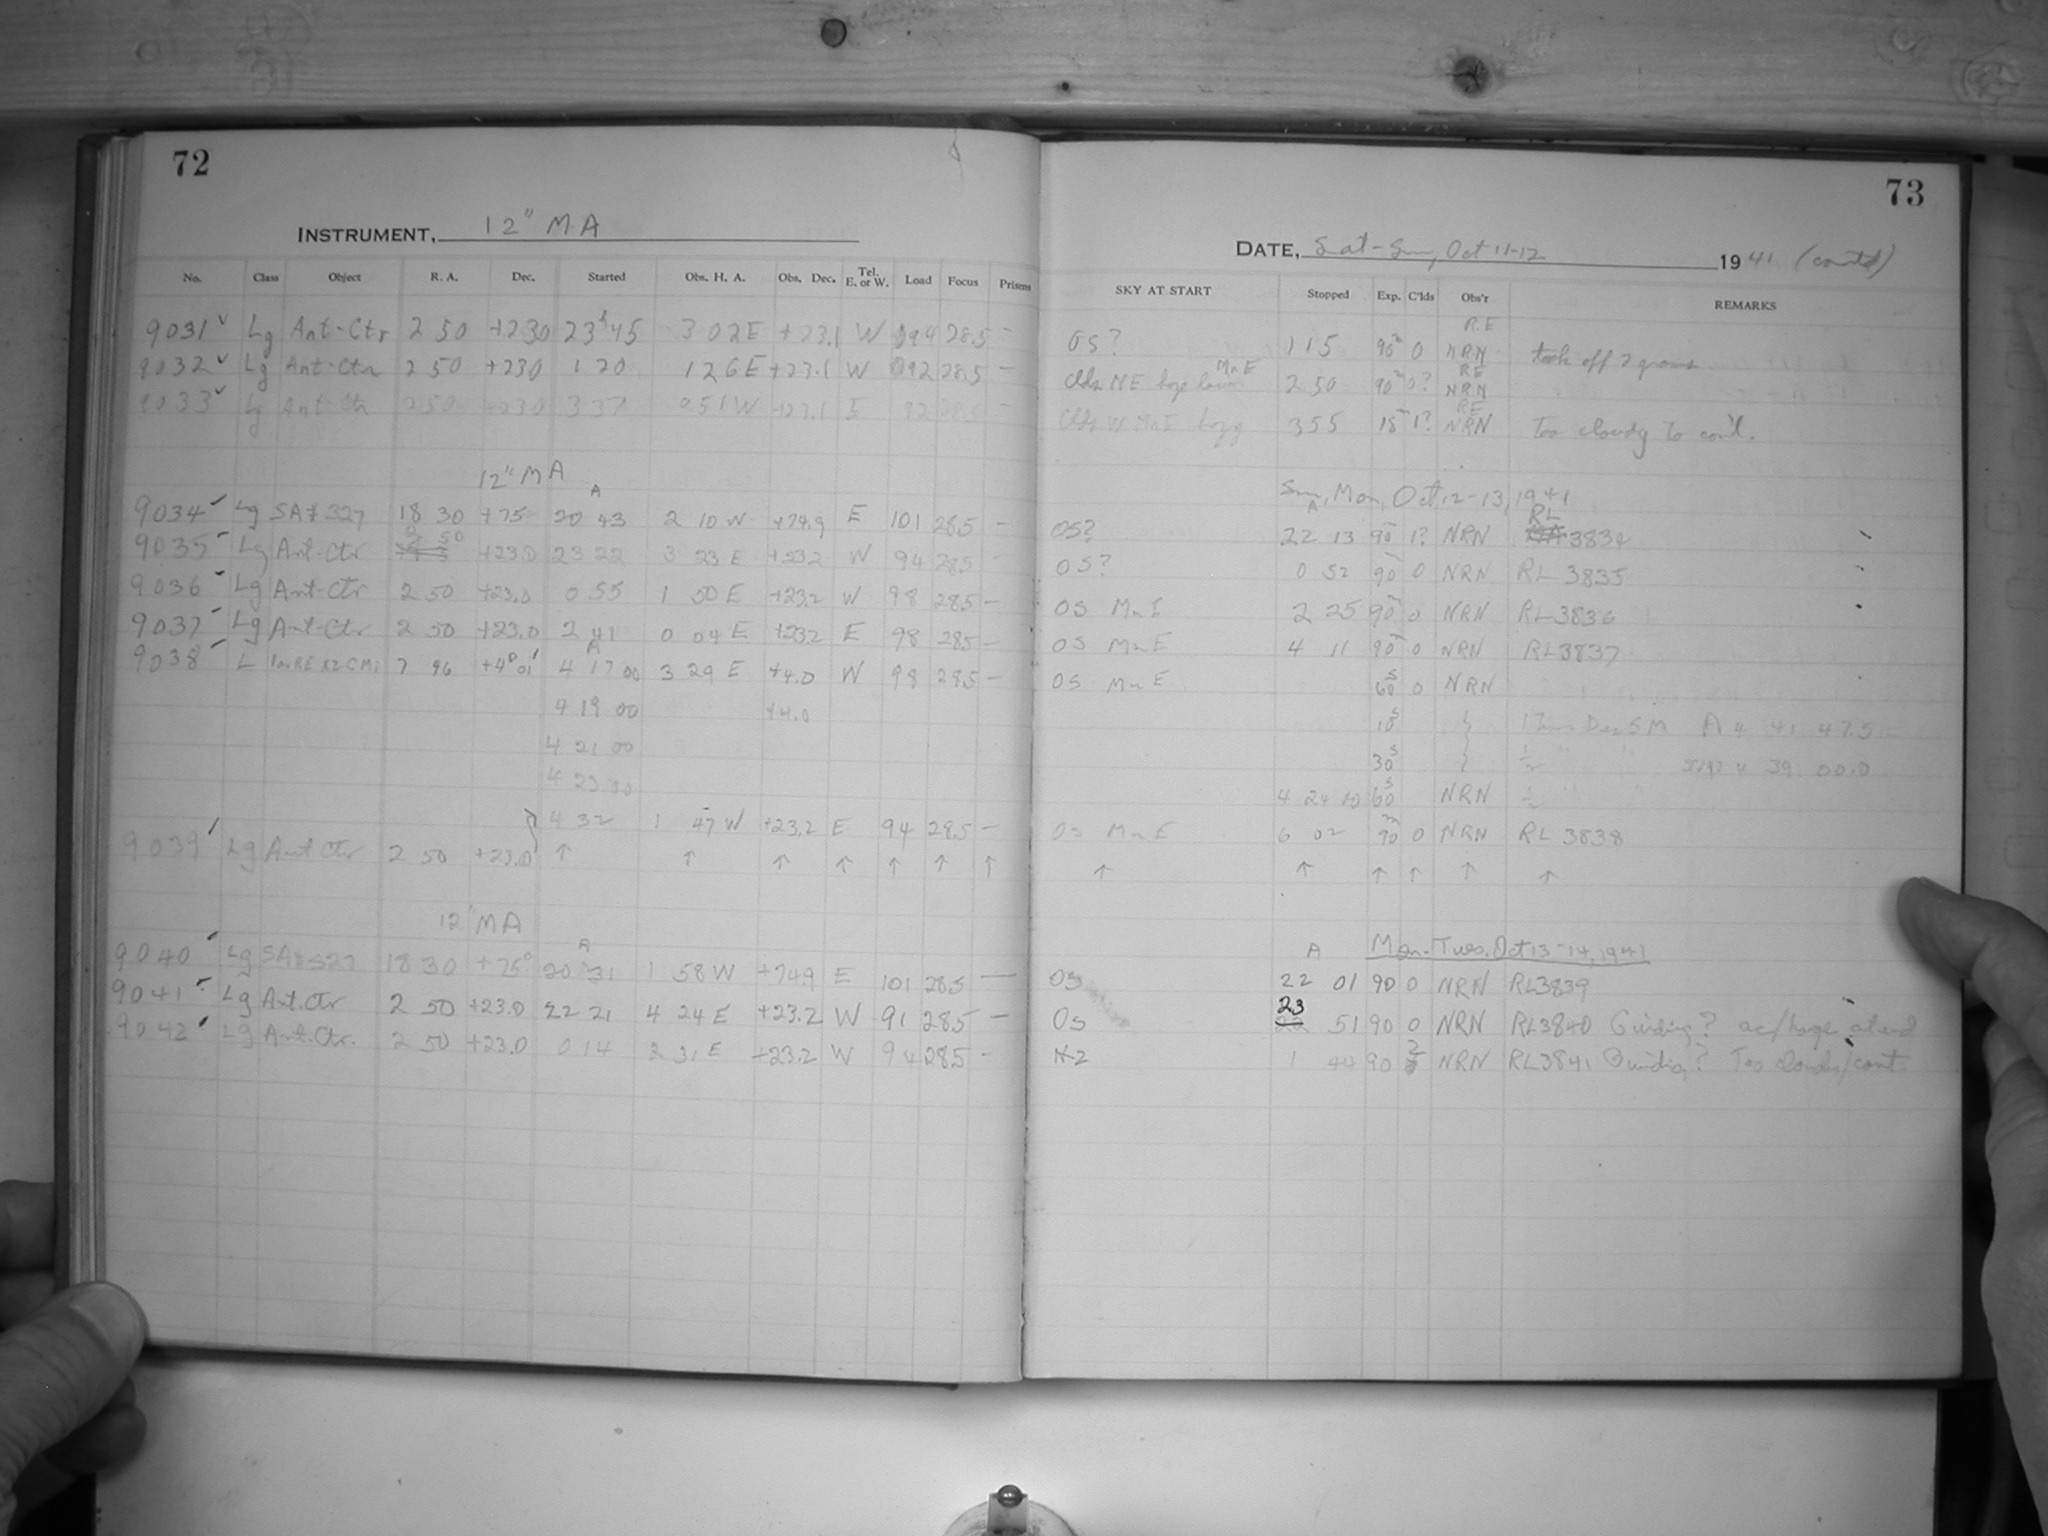 72
INSTRUMENT, 12" MA
No. Class Object R. A. Dec. Started Obs. H. A. Obs. Dec. Tel. E. or W. Load Focus Prisms
9031 Lg Ant-Ctr 2 50 +230 23 45 3 02 E +23.1 W 94 28.5 -
9032 Lg Ant-Ctr 2 50 +230 1 20 1 26 E +23.1 W 92 28.5 -
9033 Lg Ant-Ctr 2 50 3 37 0 51 W +23.1 E 92 28.5 -
12" MA
9034 Lg SA 327 18 30 +75 20 43 2 10 W +74.9 E 101 28.5 -
9035 Lg Ant-Ctr 2 50 +23.0 23 22 3 23 E +23.2 W 94 28.5 -
9036 Lg Ant-Ctr 2 50 +23.0 0 55 1 50 E +23.2 W 98 28.5 -
9037 Lg Ant-Ctr 2 50 +23.0 2 41 0 04 E +23.2 E 98 28.5 -
9038 L 7 +4° 01' 4 17 00 3 29 E +4.0 W 98 28.5 -
4 19 00 +4.0
4 21 00
4 23 00
4 32 1 47 W +23.2 E 94 28.5 -
9039 Lg Ant Ctr 2 50 +23.0 ↑ ↑ ↑ ↑ ↑ ↑ ↑
12" MA
9040 Lg SA 327 18 30 +75° 20 31 1 58 W +74.9 E 101 28.5 —
9041 Lg Ant. Ctr 2 50 +23.0 22 21 4 24 E +23.2 W 91 28.5 —
9042 Lg Ant. Ctr. 2 50 +23.0 0 14 2 31 E +23.2 W 94 28.5 -
73
DATE, Sat-Sun, Oct 11-12 1941 (contd)
SKY AT START Stopped Exp. C'lds Obs'r REMARKS
OS? 1 15 90m 0 RE NRN took off 2
Clds NE Mn E 2 50 90m 0? RE NRN
Clds W Mn E hazy 3 55 18m 1? RE NRN Too cloudy to cont.
Sun, Mon, Oct 12-13, 1941
OS? 22 13 90 1? NRN RL 3834
OS? 0 52 90 0 NRN RL 3835
OS Mn E 2 25 90m 0 NRN RL 3836
OS Mn E 4 11 90m 0 NRN RL 3837
OS Mn E 60s 0 NRN
10s 12m Dec SM A 4 41 47.5
30s 4 39 00.0
4 24 10 60s NRN
OS Mn E 6 02 90m 0 NRN RL 3838
↑ ↑ ↑ ↑ ↑ ↑
A Mon-Tues, Oct 13-14, 1941
OS 22 01 90 0 NRN RL3839
OS 23 51 90 0 NRN RL3840 Guiding? at end
HZ 1 44 90 2 NRN RL3841 Guiding? Too cloudy/cont.